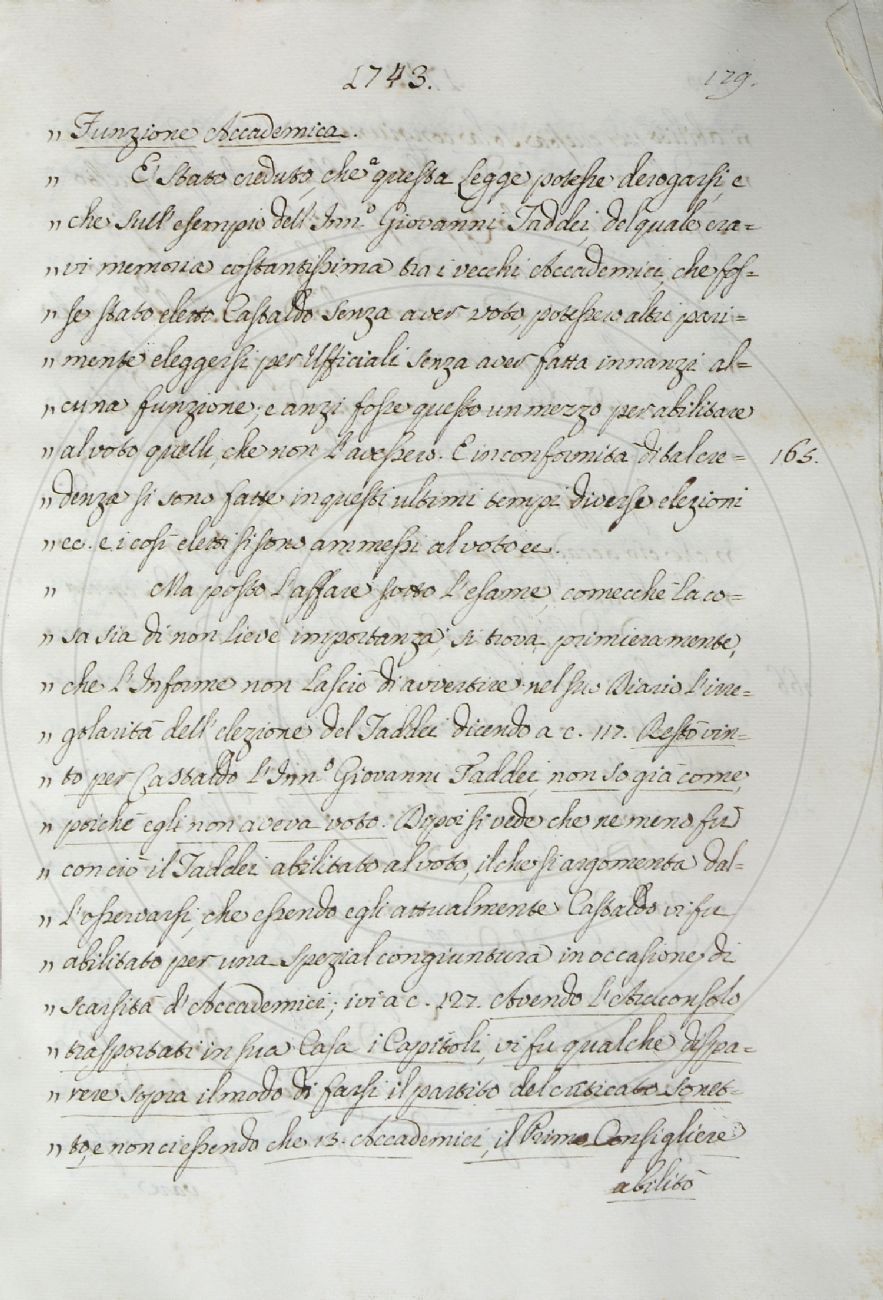 1743. 129.
„ Funzione Accademica.
„ E' stato creduto, che questa Legge potesse derogarsi, e
„ che sull'esempio dell'Inn.º Giovanni Taddei, del quale era=
„ vi memoria costantissima tra i vecchi Accademici, che fos=
„ se stato eletto Castaldo senza aver voto, potessero altri pari=
„ mente eleggersi per Ufficiali senza aver fatta innanzi al=
„ cuna funzione; e anzi fosse questo un mezzo per abilitare
„ al voto quelli, che non l'avessero. E in conformità di tal cre= 165.
„ denza si sono fatte in questi ultimi tempi diverse elezioni
„ ec. e i così eletti si sono ammessi al voto ec.
„ Ma posto l'affare sotto l'esame, comecchè la co=
„ sa sia di non lieve importanza, si trova primieramente,
„ che l'Informe non lasciò di avvertire nel suo Diario l'irre=
„ golarità dell'elezione del Taddei dicendo a c. 117. Restò vin=
„ to per Castaldo l'Inn.º Giovanni Taddei, non so già come,
„ poichè egli non aveva voto. Dipoi si vede che ne meno fu
„ con ciò il Taddei abilitato al voto, il che si argomenta dal=
„ l'osservarsi, che essendo egli attualmente Castaldo vi fu
„ abilitato per una spezial congiuntura in occasione di
„ scarsità d'Accademici; ivi a c. 127. Avendo l'Arciconsolo
„ trasportati in sua Casa i Capitoli, vi fu qualche dispa=
„ rere sopra il modo di farsi il partito del criticato Sonet=
„ to, e non ci essendo che 13. Accademici, il Primo Consigliere
abilitò